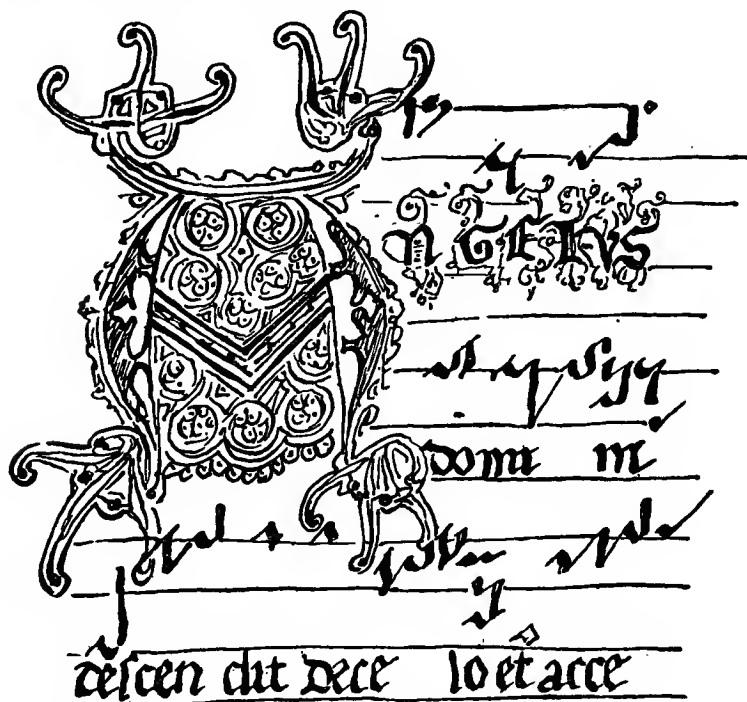 ANGELVS
domi ni
descen dit dece lo et acce